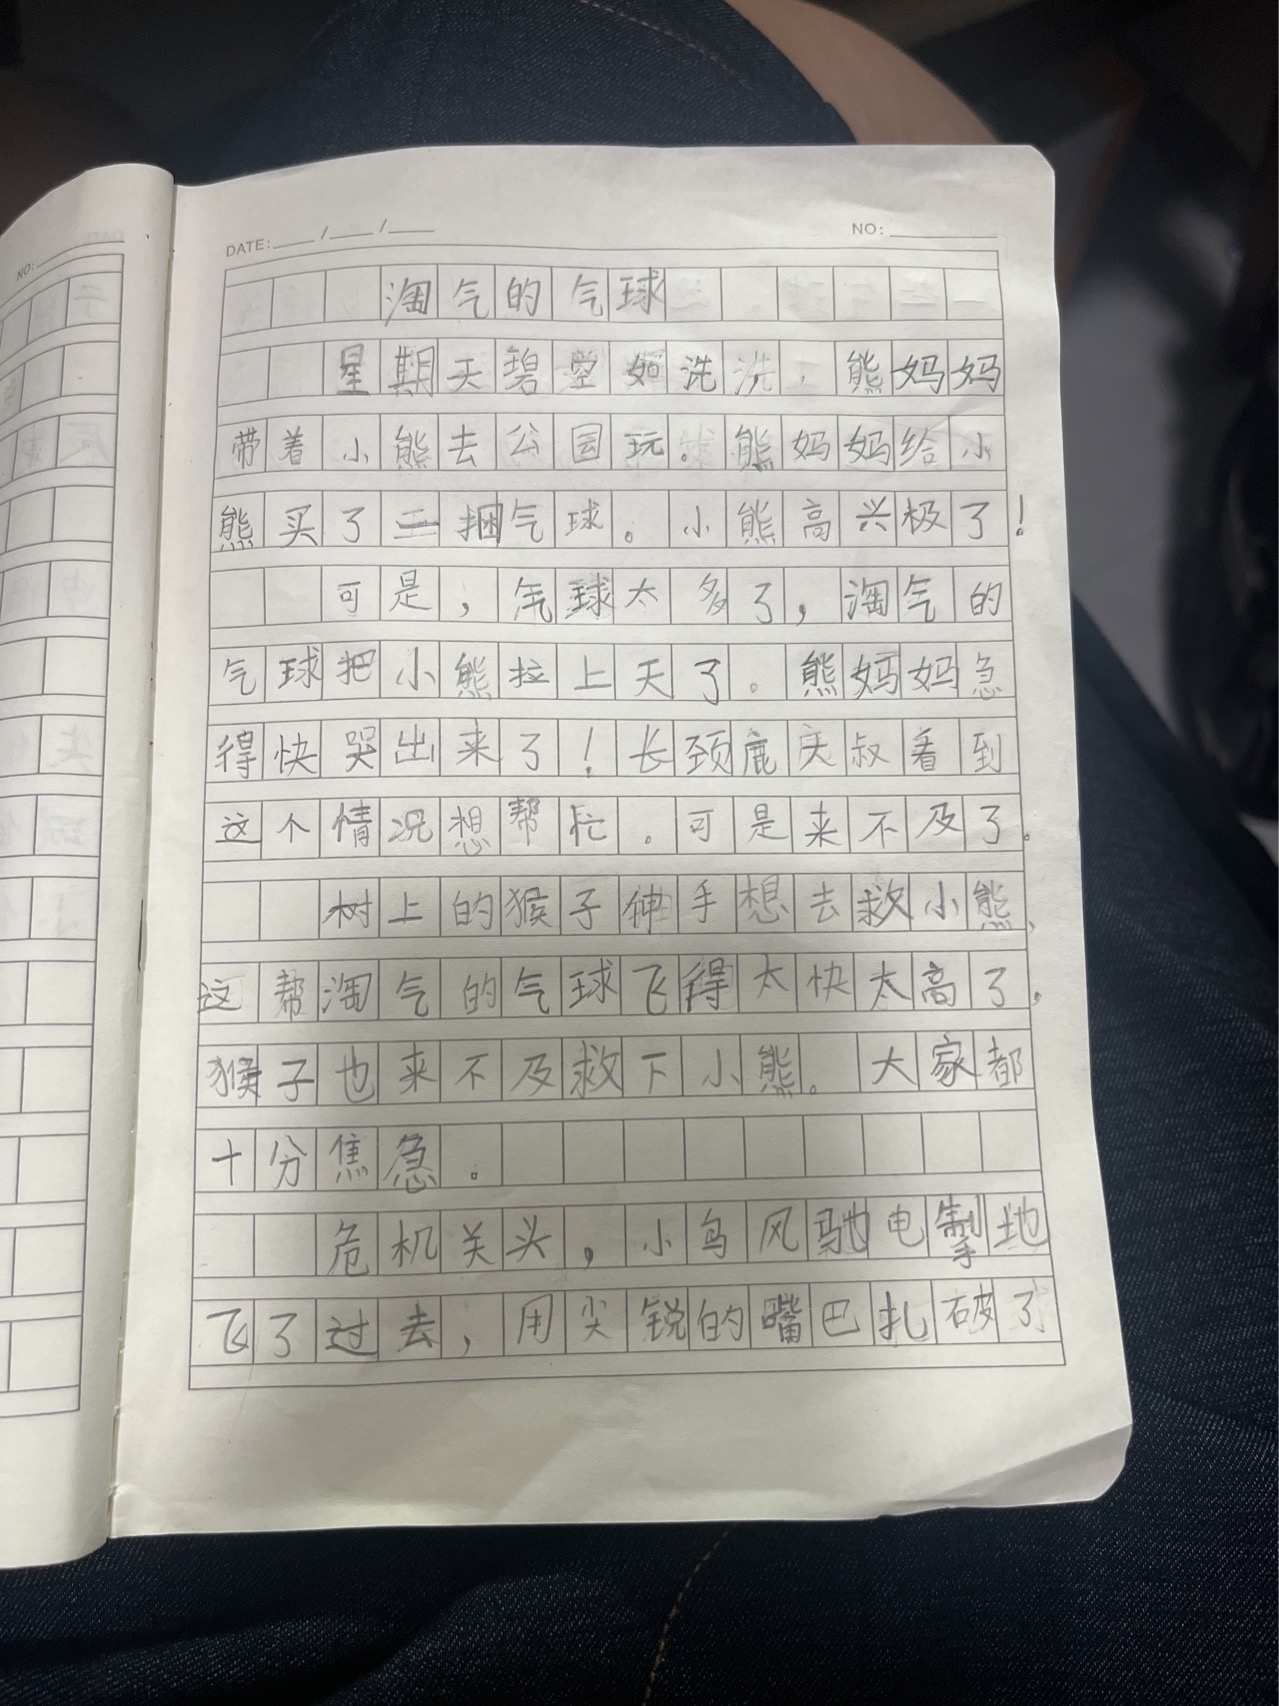 DATE: ___/___/___ NO: ___
NO:
淘气的气球
星期天碧空如洗，熊妈妈
带着小熊去公园玩。熊妈妈给小
熊买了一捆气球。小熊高兴极了！
可是，气球太多了，淘气的
气球把小熊拉上天了。熊妈妈急
得快哭出来了！长颈鹿庆叔看到
这个情况想帮忙。可是来不及了。
树上的猴子伸手想去救小熊，
这帮淘气的气球飞得太快太高了，
猴子也来不及救下小熊。大家都
十分焦急。
危机关头，小鸟风驰电掣地
飞了过去，用尖锐的嘴巴扎破了